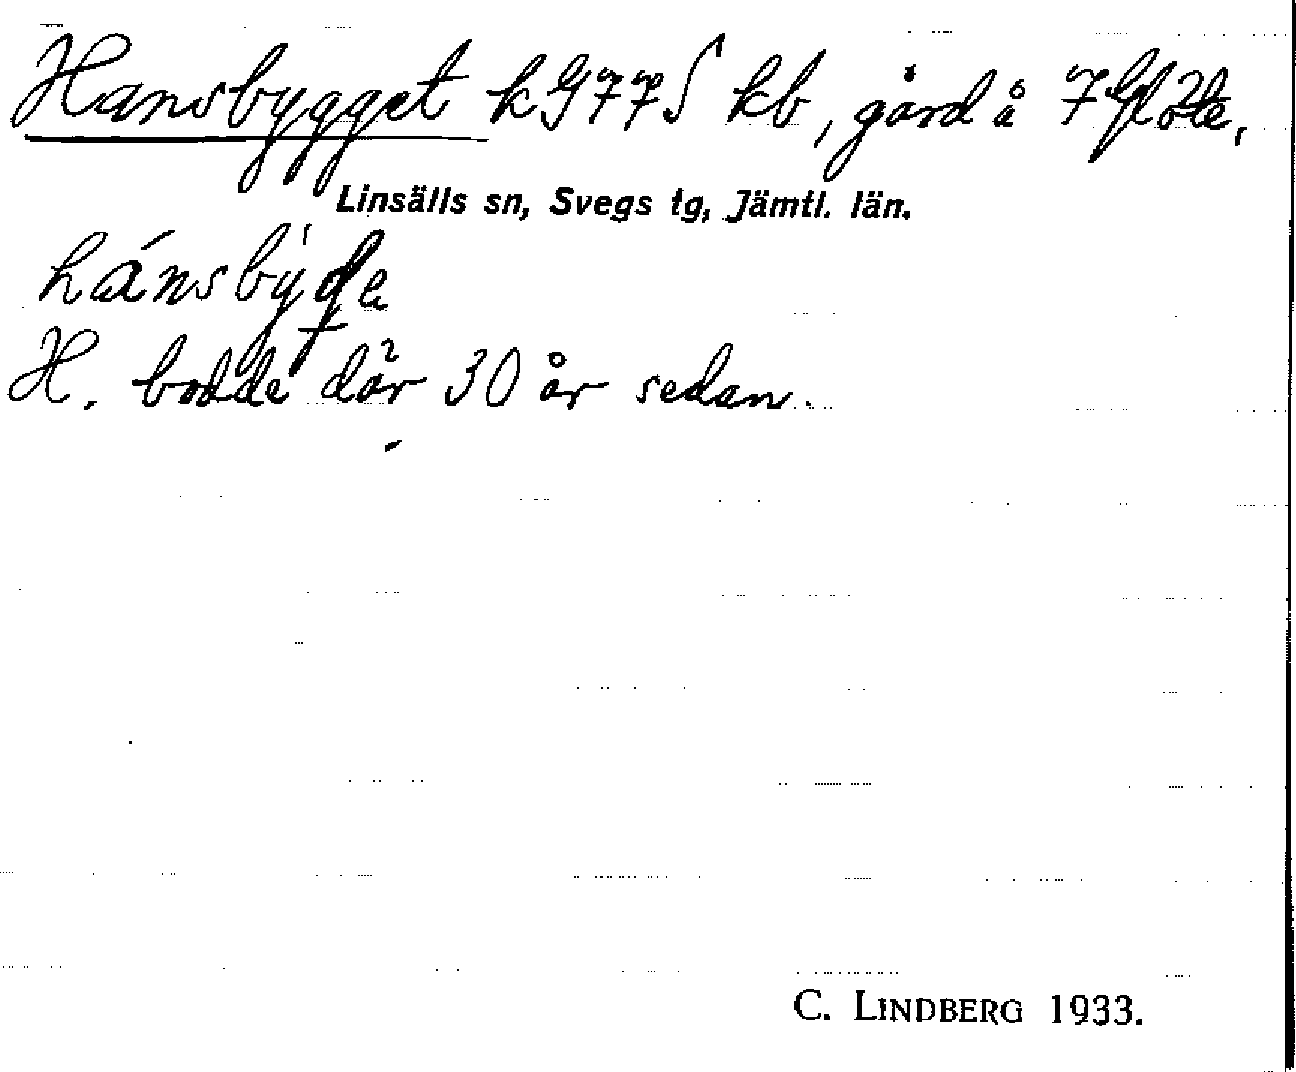 Hansbygget k G 77 S kb, gård å 7 Glöte,
Linsälls sn, Svegs tg, Jämtl. län.
hánsbýge
H. bodde där 30 år sedan.
C. LINDBERG 1933.